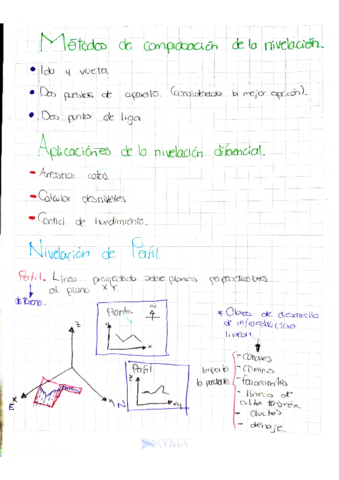 Métodos de comprobación de la nivelación.
• Ida y vuelta.
• Dos puestas de aparato. (considerado la mejor opción).
• Dos puntos de liga
Aplicaciones de la nivelación diferencial.
- Arrastrar cotas.
- Calcular desniveles
- Control de hundimiento.
Nivelación de Perfil
Perfil. Línea proyectada sobre planos perpendiculares
al plano XY.
Planta
N
x
Perfil
xy
z
E x
y N
* Obras de desarrollo
de infraestructura
lineal.
Importa
la pendiente
- canales
- caminos
- ferrocarriles
- líneas de
alta tensión
- ductos
- drenaje